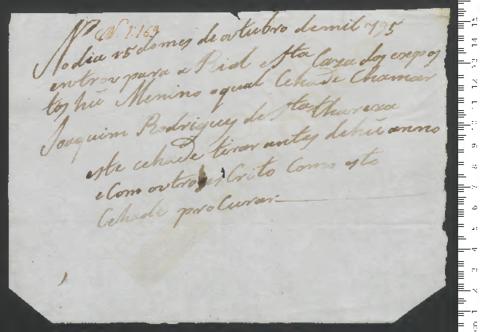 Nº Nº 1163
No dia 15 do mes de outubro de mil 795
entrou para a Rial esta Caza dos expos
tos hũ Menino o qual Cehade Chamar
Joaquim Rodrigues de Sta thareza
este cehade tirar antes de hũ anno
e Com outro esCrito Como esto
Cehade proCurar